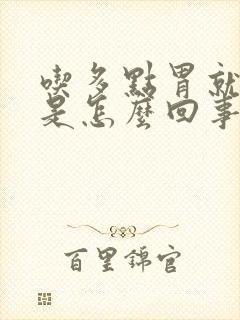 喫多點胃就
是怎麼回事
百里錦官